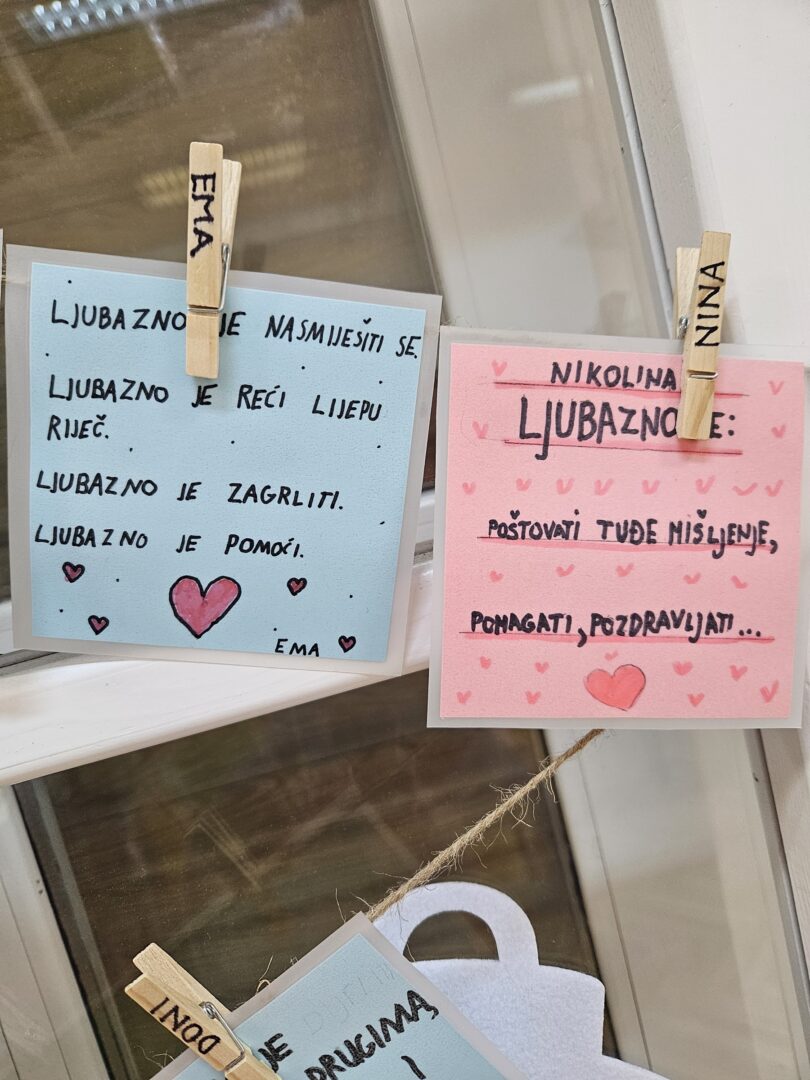 EMA
LJUBAZNO JE NASMIJEŠITI SE.
LJUBAZNO JE REĆI LIJEPU
RIJEČ.
LJUBAZNO JE ZAGRLITI.
LJUBAZNO JE POMOĆI.
EMA
NINA
NIKOLINA
LJUBAZNO JE:
POŠTOVATI TUĐE MIŠLJENJE,
POMAGATI, POZDRAVLJATI...
DONI
JE
DRUGIMA,
I